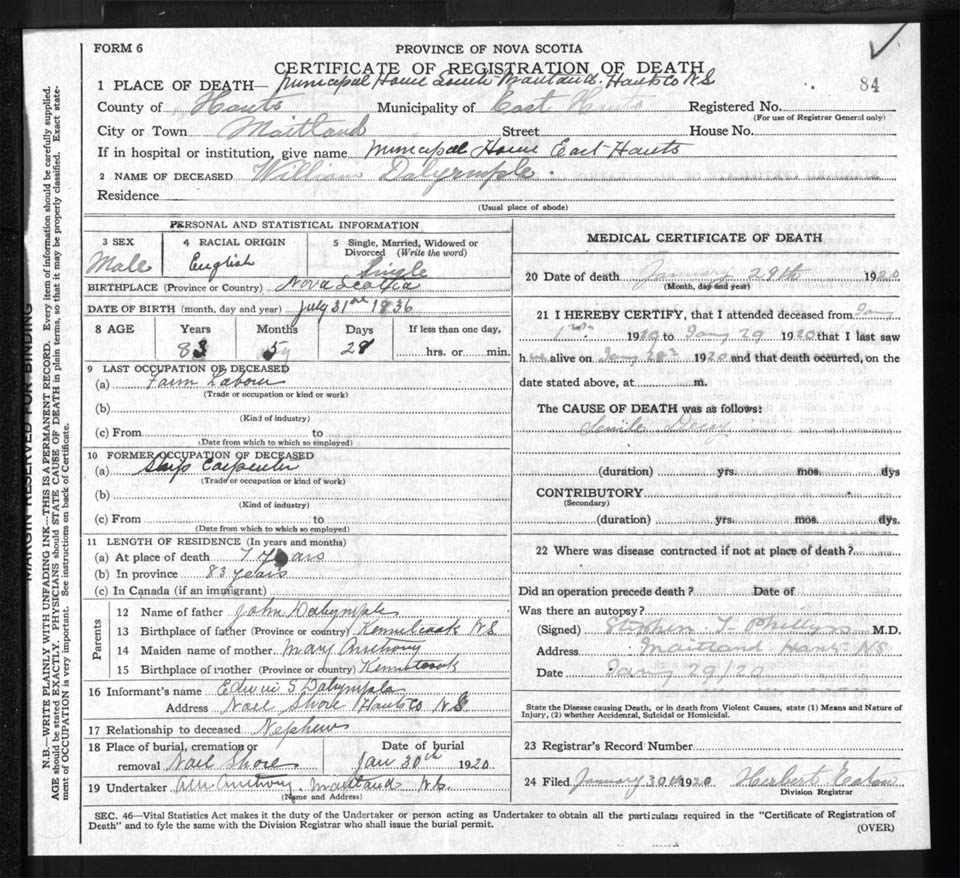 FORM 6
PROVINCE OF NOVA SCOTIA
CERTIFICATE OF REGISTRATION OF DEATH
84
1 PLACE OF DEATH— Municipal Home South Maitland. Hants Co N S
County of Hants Municipality of East Hants Registered No.
(For use of Registrar General only)
City or Town Maitland Street House No.
If in hospital or institution, give name Municipal Home East Hants
2 NAME OF DECEASED William Dalyrmple.
Residence
(Usual place of abode)
PERSONAL AND STATISTICAL INFORMATION
3 SEX Male
4 RACIAL ORIGIN English
5 Single, Married, Widowed or Divorced (Write the word) Single
BIRTHPLACE (Province or Country) Nova Scotia
DATE OF BIRTH (month, day and year) July 31st 1836
8 AGE Years Months Days If less than one day,
83 5 28 hrs. or min.
9 LAST OCCUPATION OF DECEASED
(a) Farm Labour
(Trade or occupation or kind or work)
(b)
(Kind of industry)
(c) From to
(Date from which to which so employed)
10 FORMER OCCUPATION OF DECEASED
(a) Ship Carpenter
(Trade or occupation or kind of work)
(b)
(Kind of industry)
(c) From to
(Date from which to which so employed)
11 LENGTH OF RESIDENCE (In years and months)
(a) At place of death 7 Years
(b) In province 83 years
(c) In Canada (if an immigrant)
Parents
12 Name of father John Dalyrmple
13 Birthplace of father (Province or country) Kennetcook N S
14 Maiden name of mother Mary Anthony
15 Birthplace of mother (Province or country) Kennetcook
16 Informant's name Edwin S Dalyrmple
Address Noel Shore Hants Co N S
17 Relationship to deceased Nephew
18 Place of burial, cremation or removal Noel Shore
Date of burial Jan 30th 1920
19 Undertaker Anthony. Maitland N S.
(Name and Address)
MEDICAL CERTIFICATE OF DEATH
20 Date of death January 29th 1920
(Month, day and year)
21 I HEREBY CERTIFY, that I attended deceased from Jany
1st 1920 to Jany 29 1920 that I last saw
h im alive on Jany 28th 1920 and that death occurred, on the
date stated above, at m.
The CAUSE OF DEATH was as follows:
Senile Decay
(duration) yrs. mos. dys
CONTRIBUTORY
(Secondary)
(duration) yrs. mos. dys.
22 Where was disease contracted if not at place of death?
Did an operation precede death? Date of
Was there an autopsy?
(Signed) Stephen T Phillips M.D.
Address Maitland Hants NS
Date Jany 29/20
State the Disease causing Death, or in death from Violent Causes, state (1) Means and Nature of
Injury, (2) whether Accidental, Suicidal or Homicidal.
23 Registrar's Record Number
24 Filed January 30th 1920 Herbert Eaton
Division Registrar
SEC. 46—Vital Statistics Act makes it the duty of the Undertaker or person acting as Undertaker to obtain all the particulars required in the "Certificate of Registration of
Death" and to fyle the same with the Division Registrar who shall issue the burial permit.
(OVER)
MARGIN RESERVED FOR BINDING
N.B.—WRITE PLAINLY WITH UNFADING INK—THIS IS A PERMANENT RECORD. Every item of information should be carefully supplied.
AGE should be stated EXACTLY. PHYSICIANS should STATE CAUSE OF DEATH in plain terms, so that it may be properly classified. Exact state-
ment of OCCUPATION is very important. See instructions on back of Certificate.